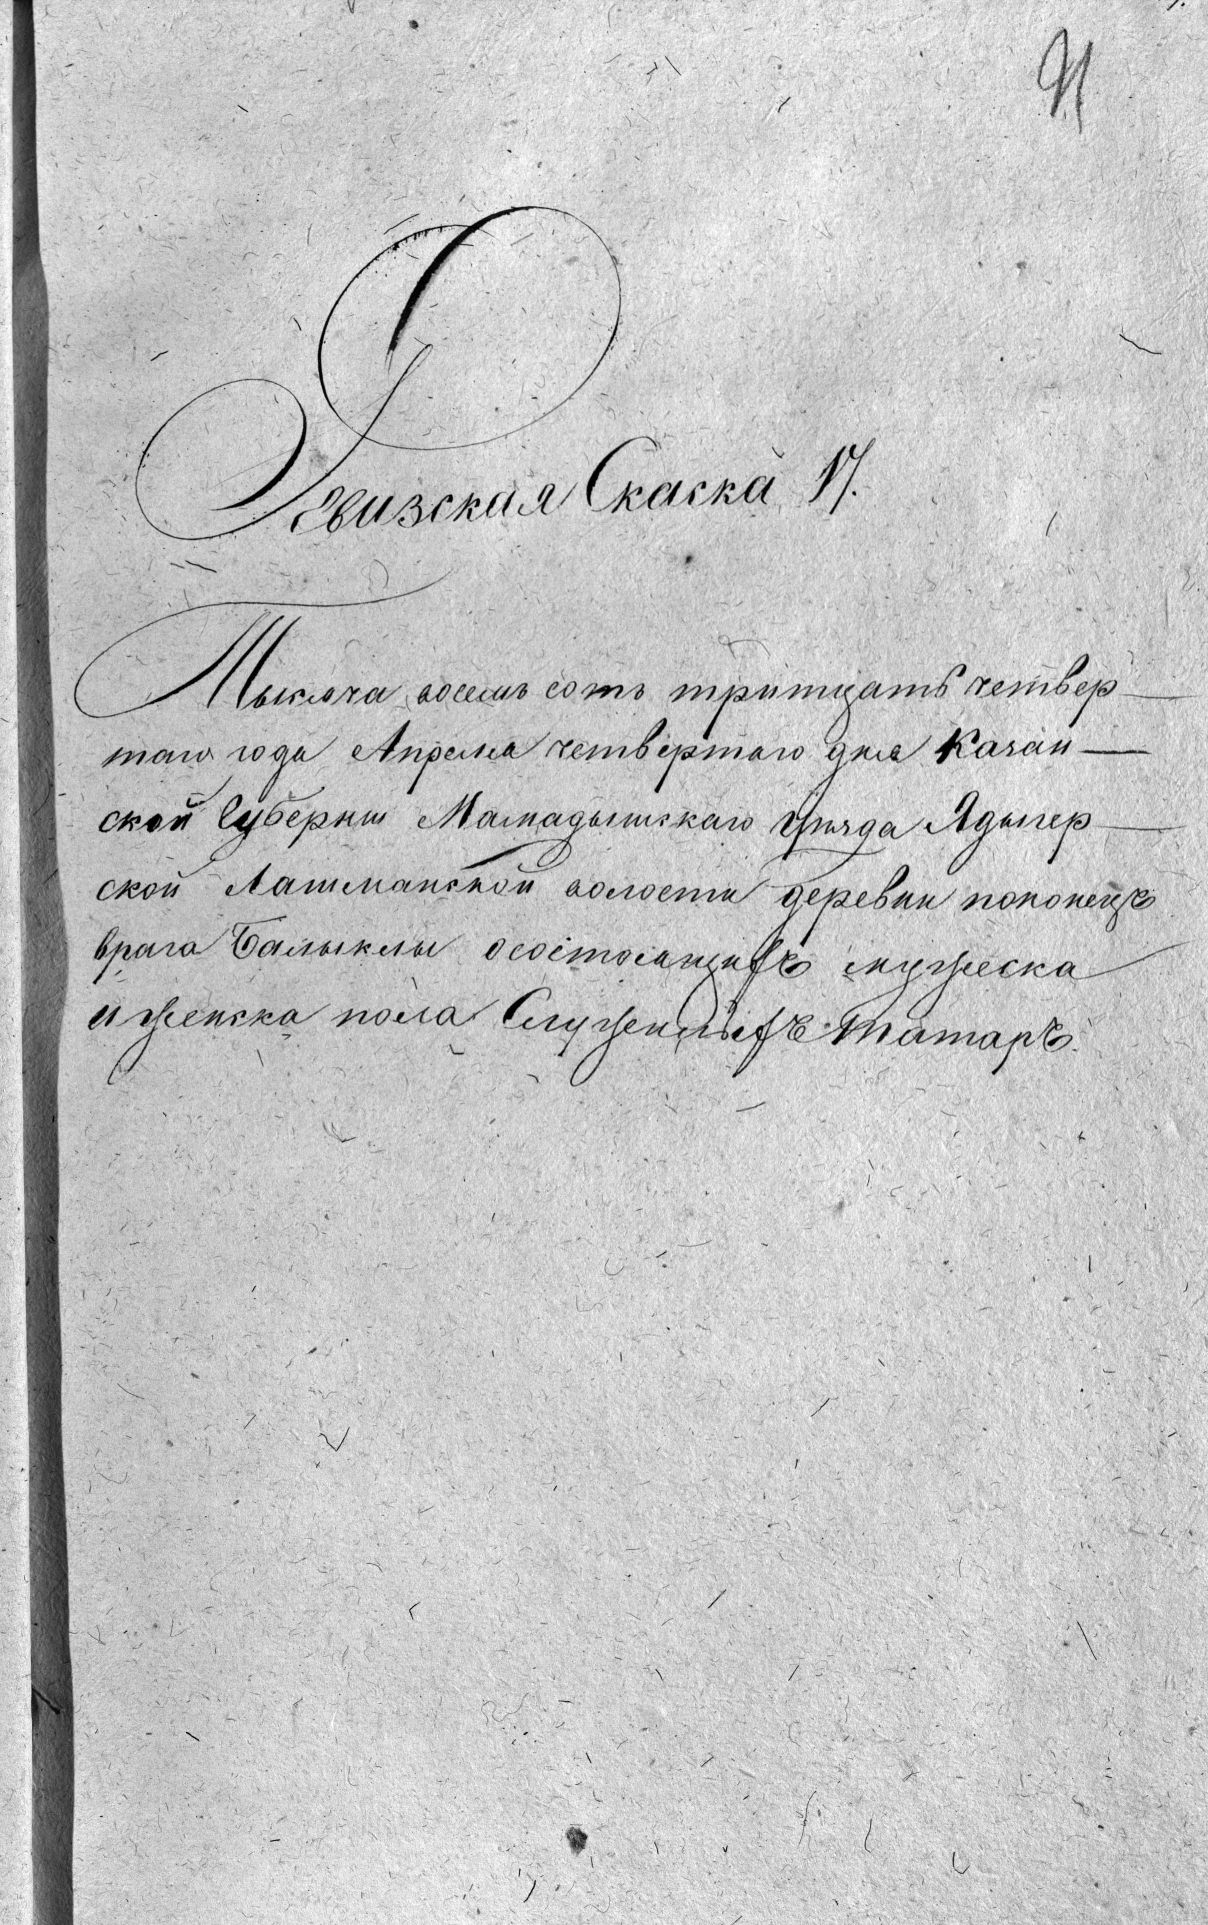 Ревизская Скаска 17.
Тысяча восемь сотъ тритцать четвер
таго года Апреля четвертаго дня Казан
ской Губернии Мамадышскаго уѣзда Ядыгер
ской Лашманской волости деревни поконецъ
врага Балыклы осостоящихъ мужеска
и женска пола Служилыхъ татаръ.